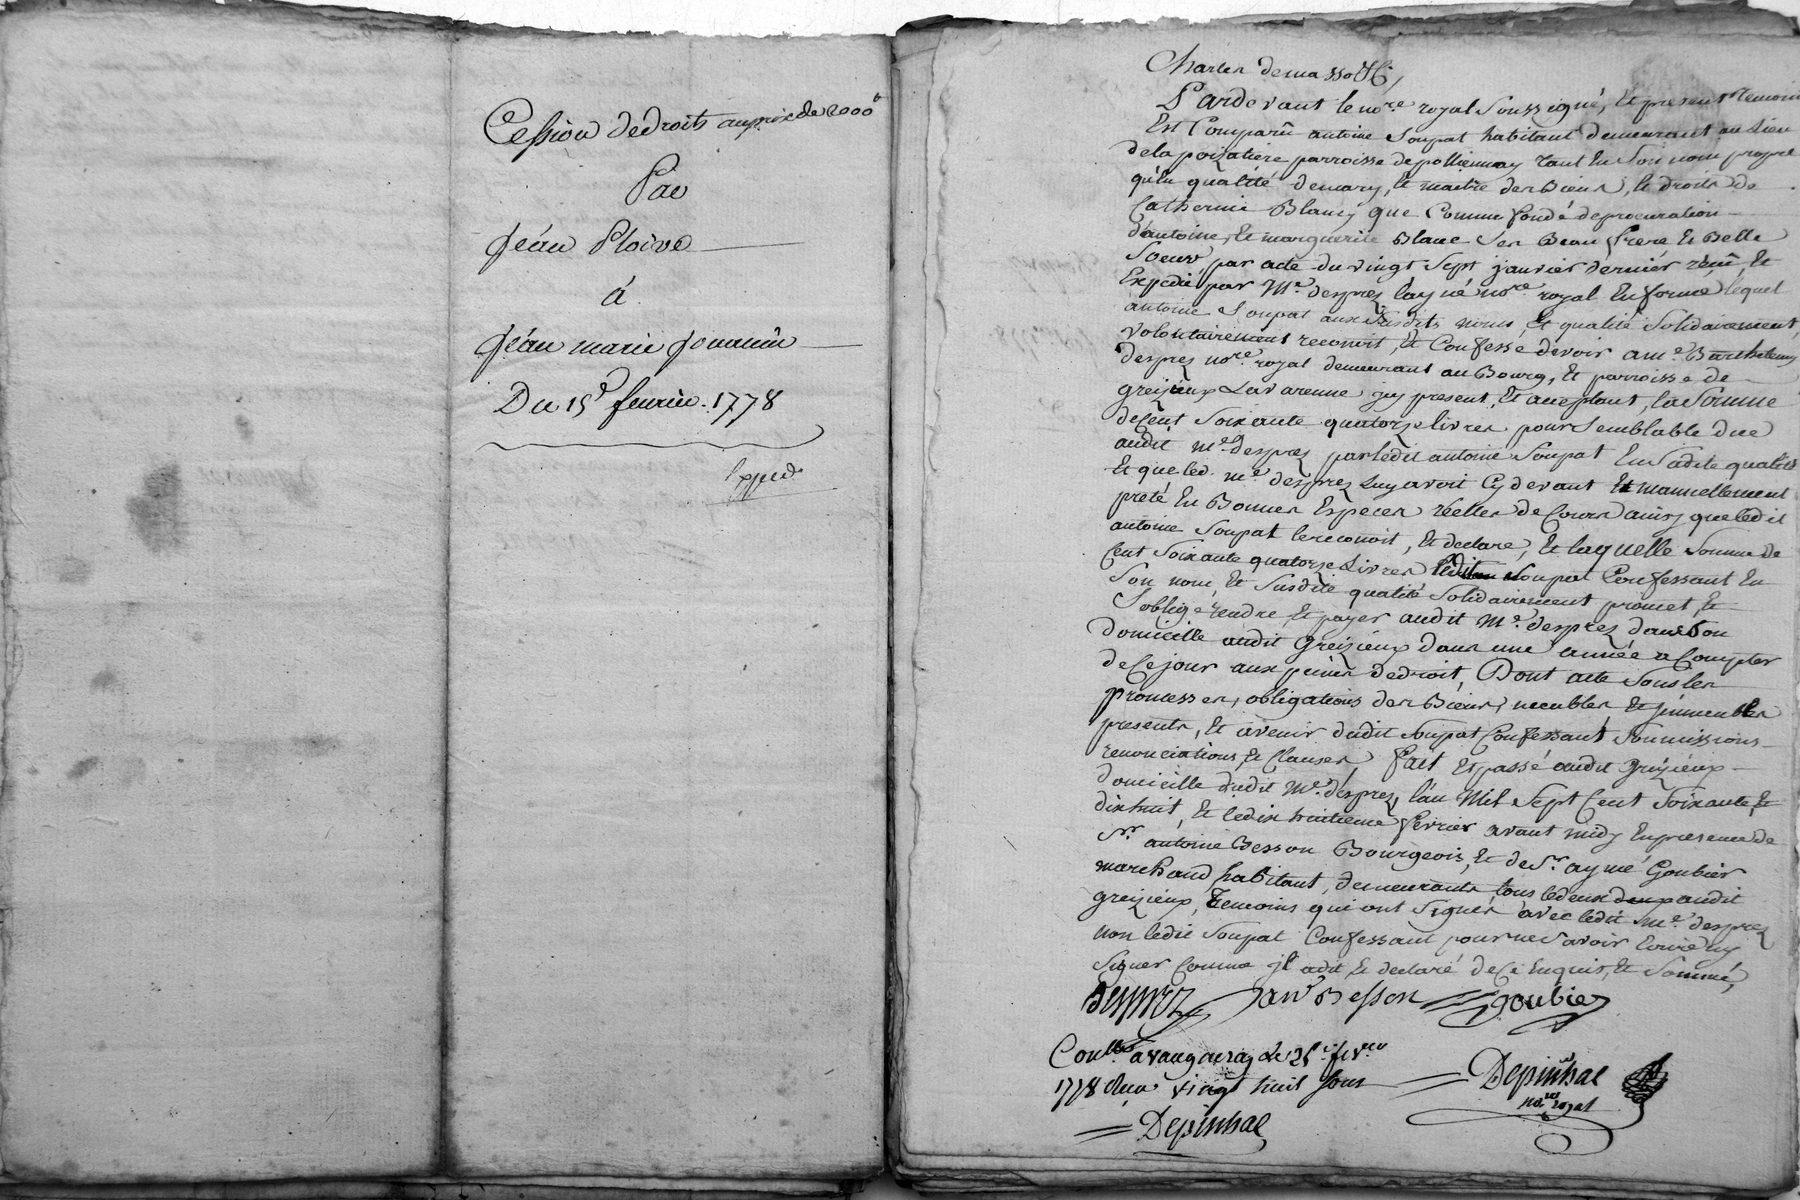 Cession de droits au prix de 2000
Par
Jean Ploive
á
Jéan marie
Du 15 fevrier 1778
Exped
Charles
Pardevant le nore royal Soussigné, Et presents temoins
Est Comparû antoine Soupat habitant demeurant au Lieu
de la poizatiére parroisse de pollionnay tant En Son nom propre
qu'En qualité de mary, Et maitre des Biens, Et droits de
Catherine Blanc, que Comme fondé de procuration
d'antoine, Et marguerite Blanc Ses Beau frere Et Belle
Soeur par acte du vingt Sept janvier dernier reçû, Et
Expedié par Me. desprez layné nore. royal En forme, lequel
antoine Soupat aux Susdits noms, Et qualité Solidairement,
volontairement reconoit, Et Confesse devoir a me. Barthelemy
desprez nore. royal demeurant au Bourg, Et parroisse de
greizieux Lavarenne icy present, Et acceptant, la Somme
de Cent Soixante quatorze livres pour Semblable due
audit me. desprez par ledit antoine Soupat En Sadite qualité
Et que led. me. desprez Luy avoit Cy devant Et manuellement
preté En Bonnes Especes réelles de Cours ainsy que ledit
antoine Soupat le reconoit, Et declare, Et laquelle Somme de
Cent Soixante quatorze Livres ledit Soupat Confessant En
Son nom, Et Susdite qualité Solidairement promet, Et
S'oblige rendre, Et payer audit Me. desprez dans Son
domicille audit greizieux dans une année a Compter
de Ce jour aux peines de droit, Dont acte Sous les
promesses, obligations des Biens, meubles Et jmmeubles
presents, Et avenir dudit Soupat Confessant Soumissions
renonciations, Et Clauses, fait Et passé audit greizieux
domicille dudit Me. desprez, l'an Mil Sept Cent Soixante, Et
dixhuit, Et le dix huitieme fevrier avant midy En presence de
Sr. antoine Besson Bourgeois, Et de Sr. aymé Goubier
marchand habitant, demeurants tous les deux audit
greizieux, temoins qui ont Signés avec ledit me. desprez
non ledit Soupat Confessant pour ne Savoir Ecrire ny
Signer Comme jl a dit Et declaré de Ce Enquis, Et Sommé,
Desprez ant Besson goubier
Conllé a vaugneray Le 25e. fevrier
1778 Reçu vingt huit Sous
Depinhac
nore royal
Depinhac